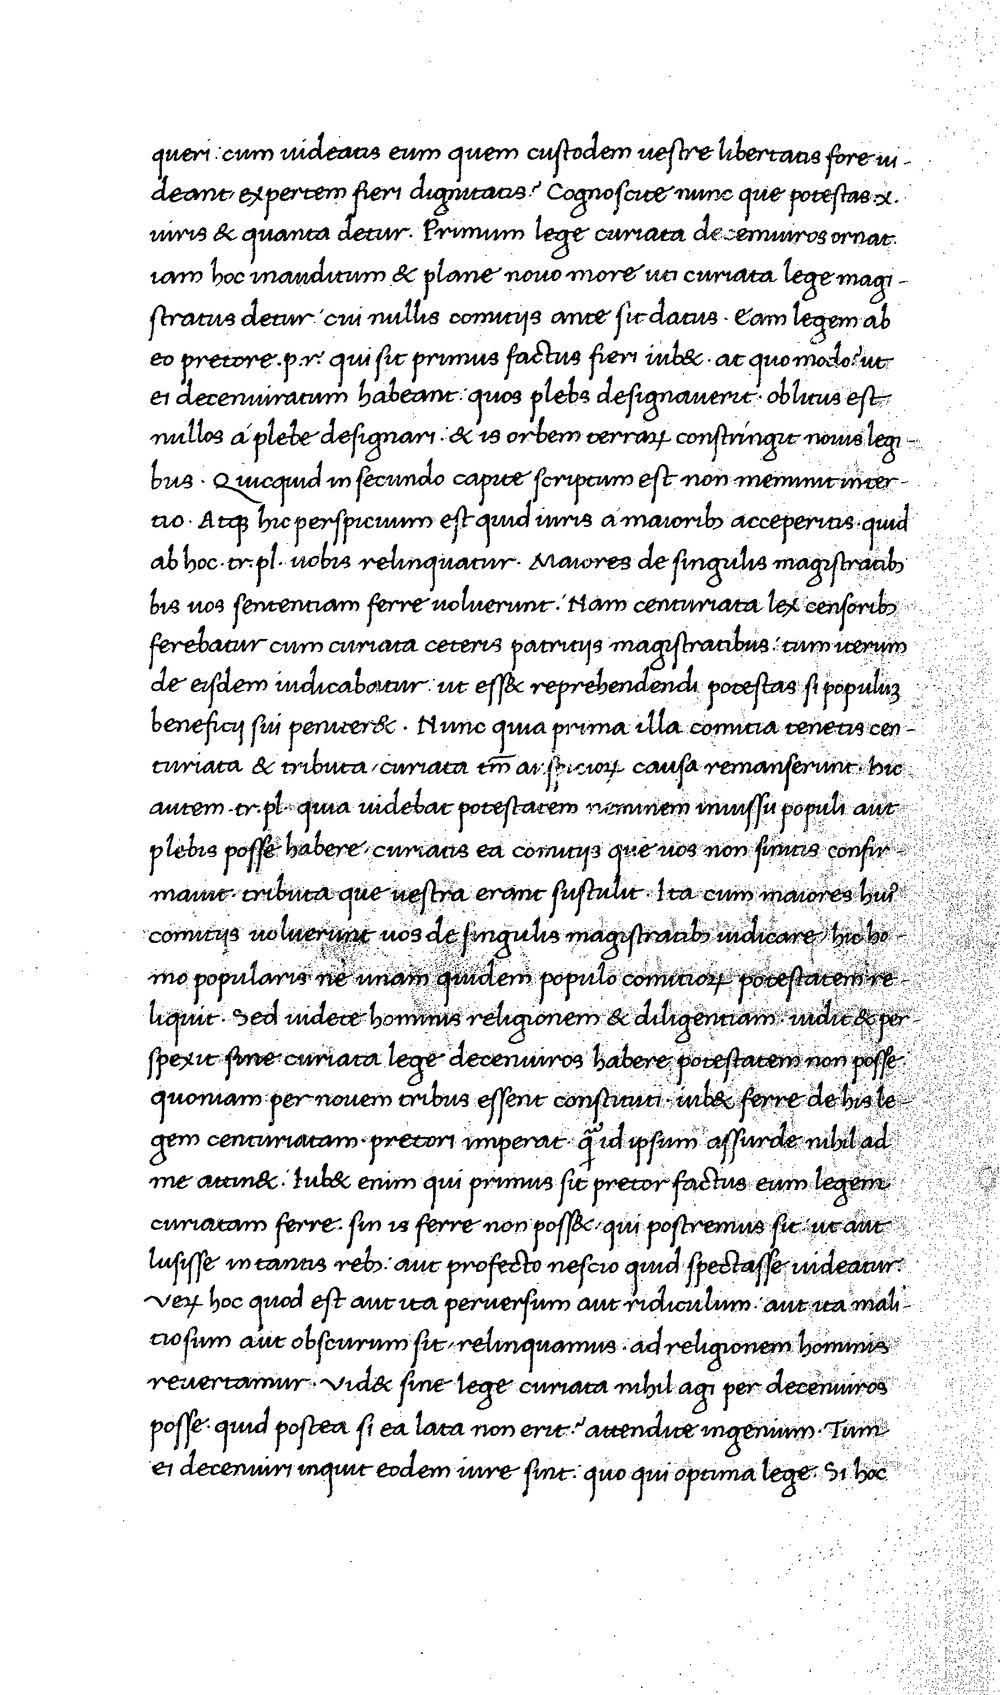 queri: cum uideatis eum quem custodem uestre libertatis fore ui-
deant expertem fieri dignitatis? Cognoscite nunc que potestas .x.
uiris & quanta detur. Primum lege curiata decemuiros ornat.
iam hoc inauditum & plane nouo more uti curiata lege magi-
stratus detur cui nullis comitijs ante sit datus. Eam legem ab
eo pretore .p.r. qui sit primus factus fieri iub&. at quo modo? ut
ei decenuiratum habeant: quos plebs designauerit. oblitus est
nullos a plebe designari. & is orbem terraꝝ constringit nouis legi-
bus. Quicquid in secundo capite scriptum est non meminit inter-
tio. Atqꝫ hic perspicuum est quid iuris a maioribꝫ acceperitis. quid
ab hoc. tr. pl. uobis relinquatur. Maiores de singulis magistratibꝫ
bis uos sententiam ferre uoluerunt: Nam centuriata lex censoribꝫ
ferebatur cum curiata ceteris patritijs magistratibus: tum iterum
de eisdem iudicabatur: ut ess& reprehendendi potestas si populuꝫ
beneficij sui peniter&. Nunc quia prima illa comitia tenetis cen-
turiata & tributa, curiata tm̄ auspicioꝝ causa remanserunt. hic
autem. tr. pl. quia uidebat potestatem neminem iniussu populi aut
plebis posse habere, curiatis ea comitijs que uos non sinitis confir-
mauit. tributa que uestra erant sustulit. Ita cum maiores huiꝰ
comitijs uoluerunt uos de singulis magistratibꝫ iudicare, hic ho-
mo popularis ne unam quidem populo comitioꝝ potestatem re-
liquit. Sed uidete hominis religionem & diligentiam. uidit & per-
spexit sine curiata lege decenuiros habere potestatem non posse.
quoniam per nouem tribus essent constituti. iub& ferre de his le-
gem centuriatam. pretori imperat. q̄ id ipsum assurde nihil ad
me attin&. Iub& enim qui primus sit pretor factus eum legem
curiatam ferre. sin is ferre non poss&, qui postremus sit. ut aut
lusisse in tantis rebꝫ: aut profecto nescio quid spectasse uideatur.
Veꝝ hoc quod est aut ita peruersum aut ridiculum. aut ita mali-
tiosum aut obscurum sit, relinquamus. ad religionem hominis
reuertamur. Vid& sine lege curiata nihil agi per decenuiros
posse. quid postea si ea lata non erit? attendite ingenium. Tum
ei decenuiri inquit eodem iure sint: quo qui optima lege. Si hoc